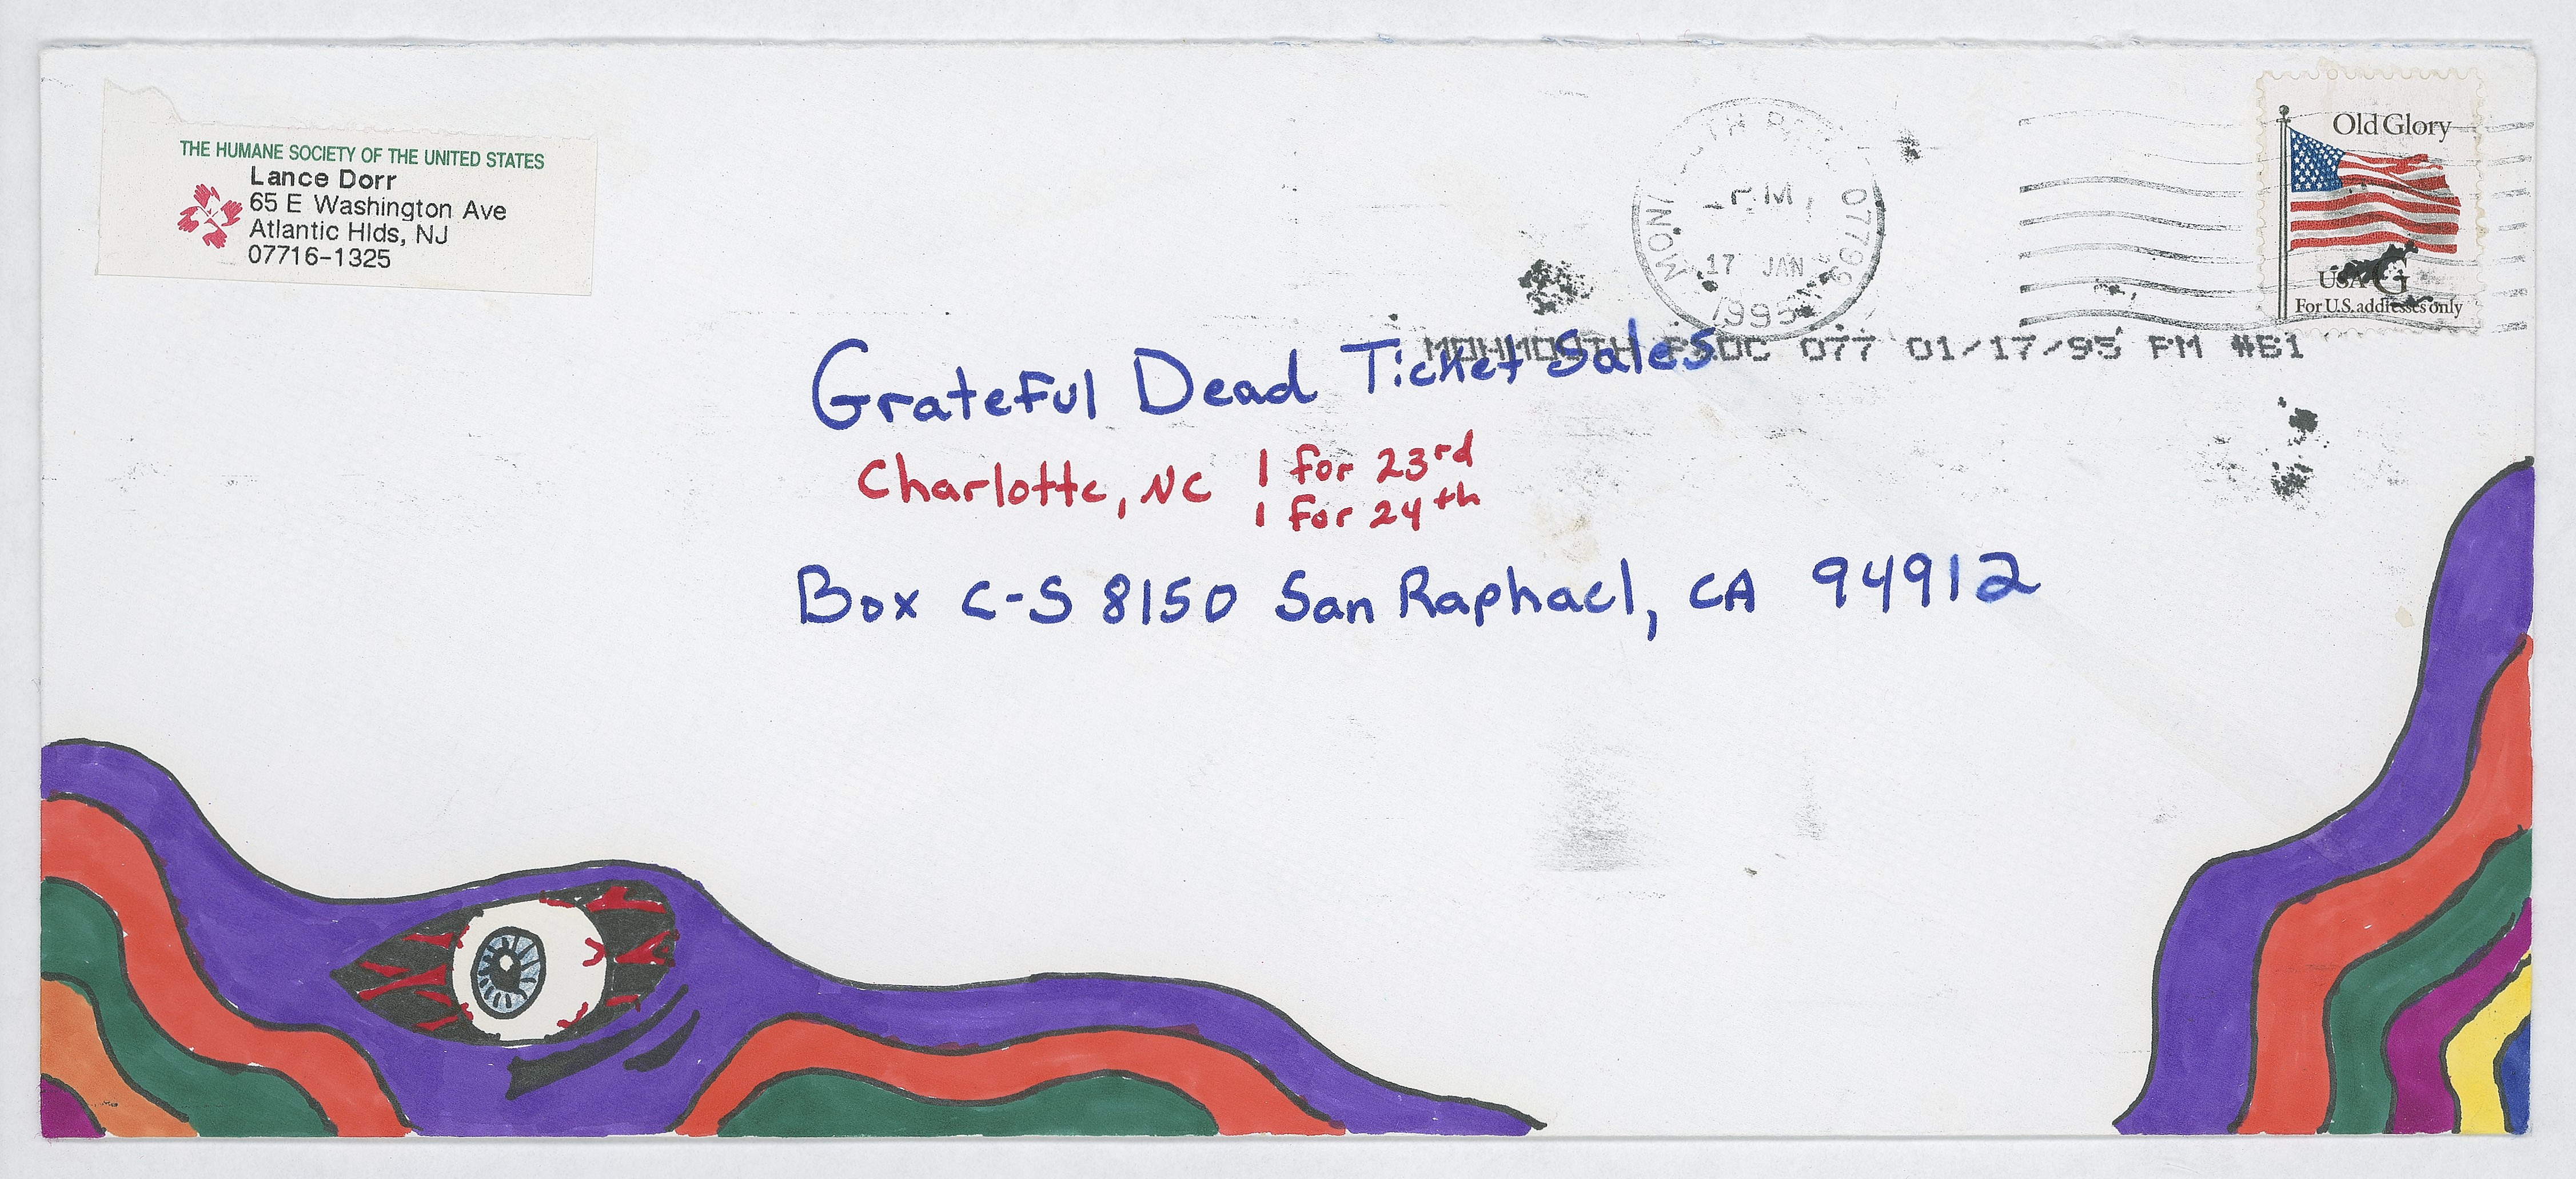 THE HUMANE SOCIETY OF THE UNITED STATES
Lance Dorr
65 E Washington Ave
Atlantic Hlds, NJ
07716-1325
MON
P.M.
17 JAN
1995
07799
Old Glory
USA G
For U.S. addresses only
MONMOUTH P&DC 077 01/17/95 PM #B1
Grateful Dead Ticket Sales
Charlotte, NC 1 for 23rd
1 for 24th
Box C-S 8150 San Raphael, CA 94912